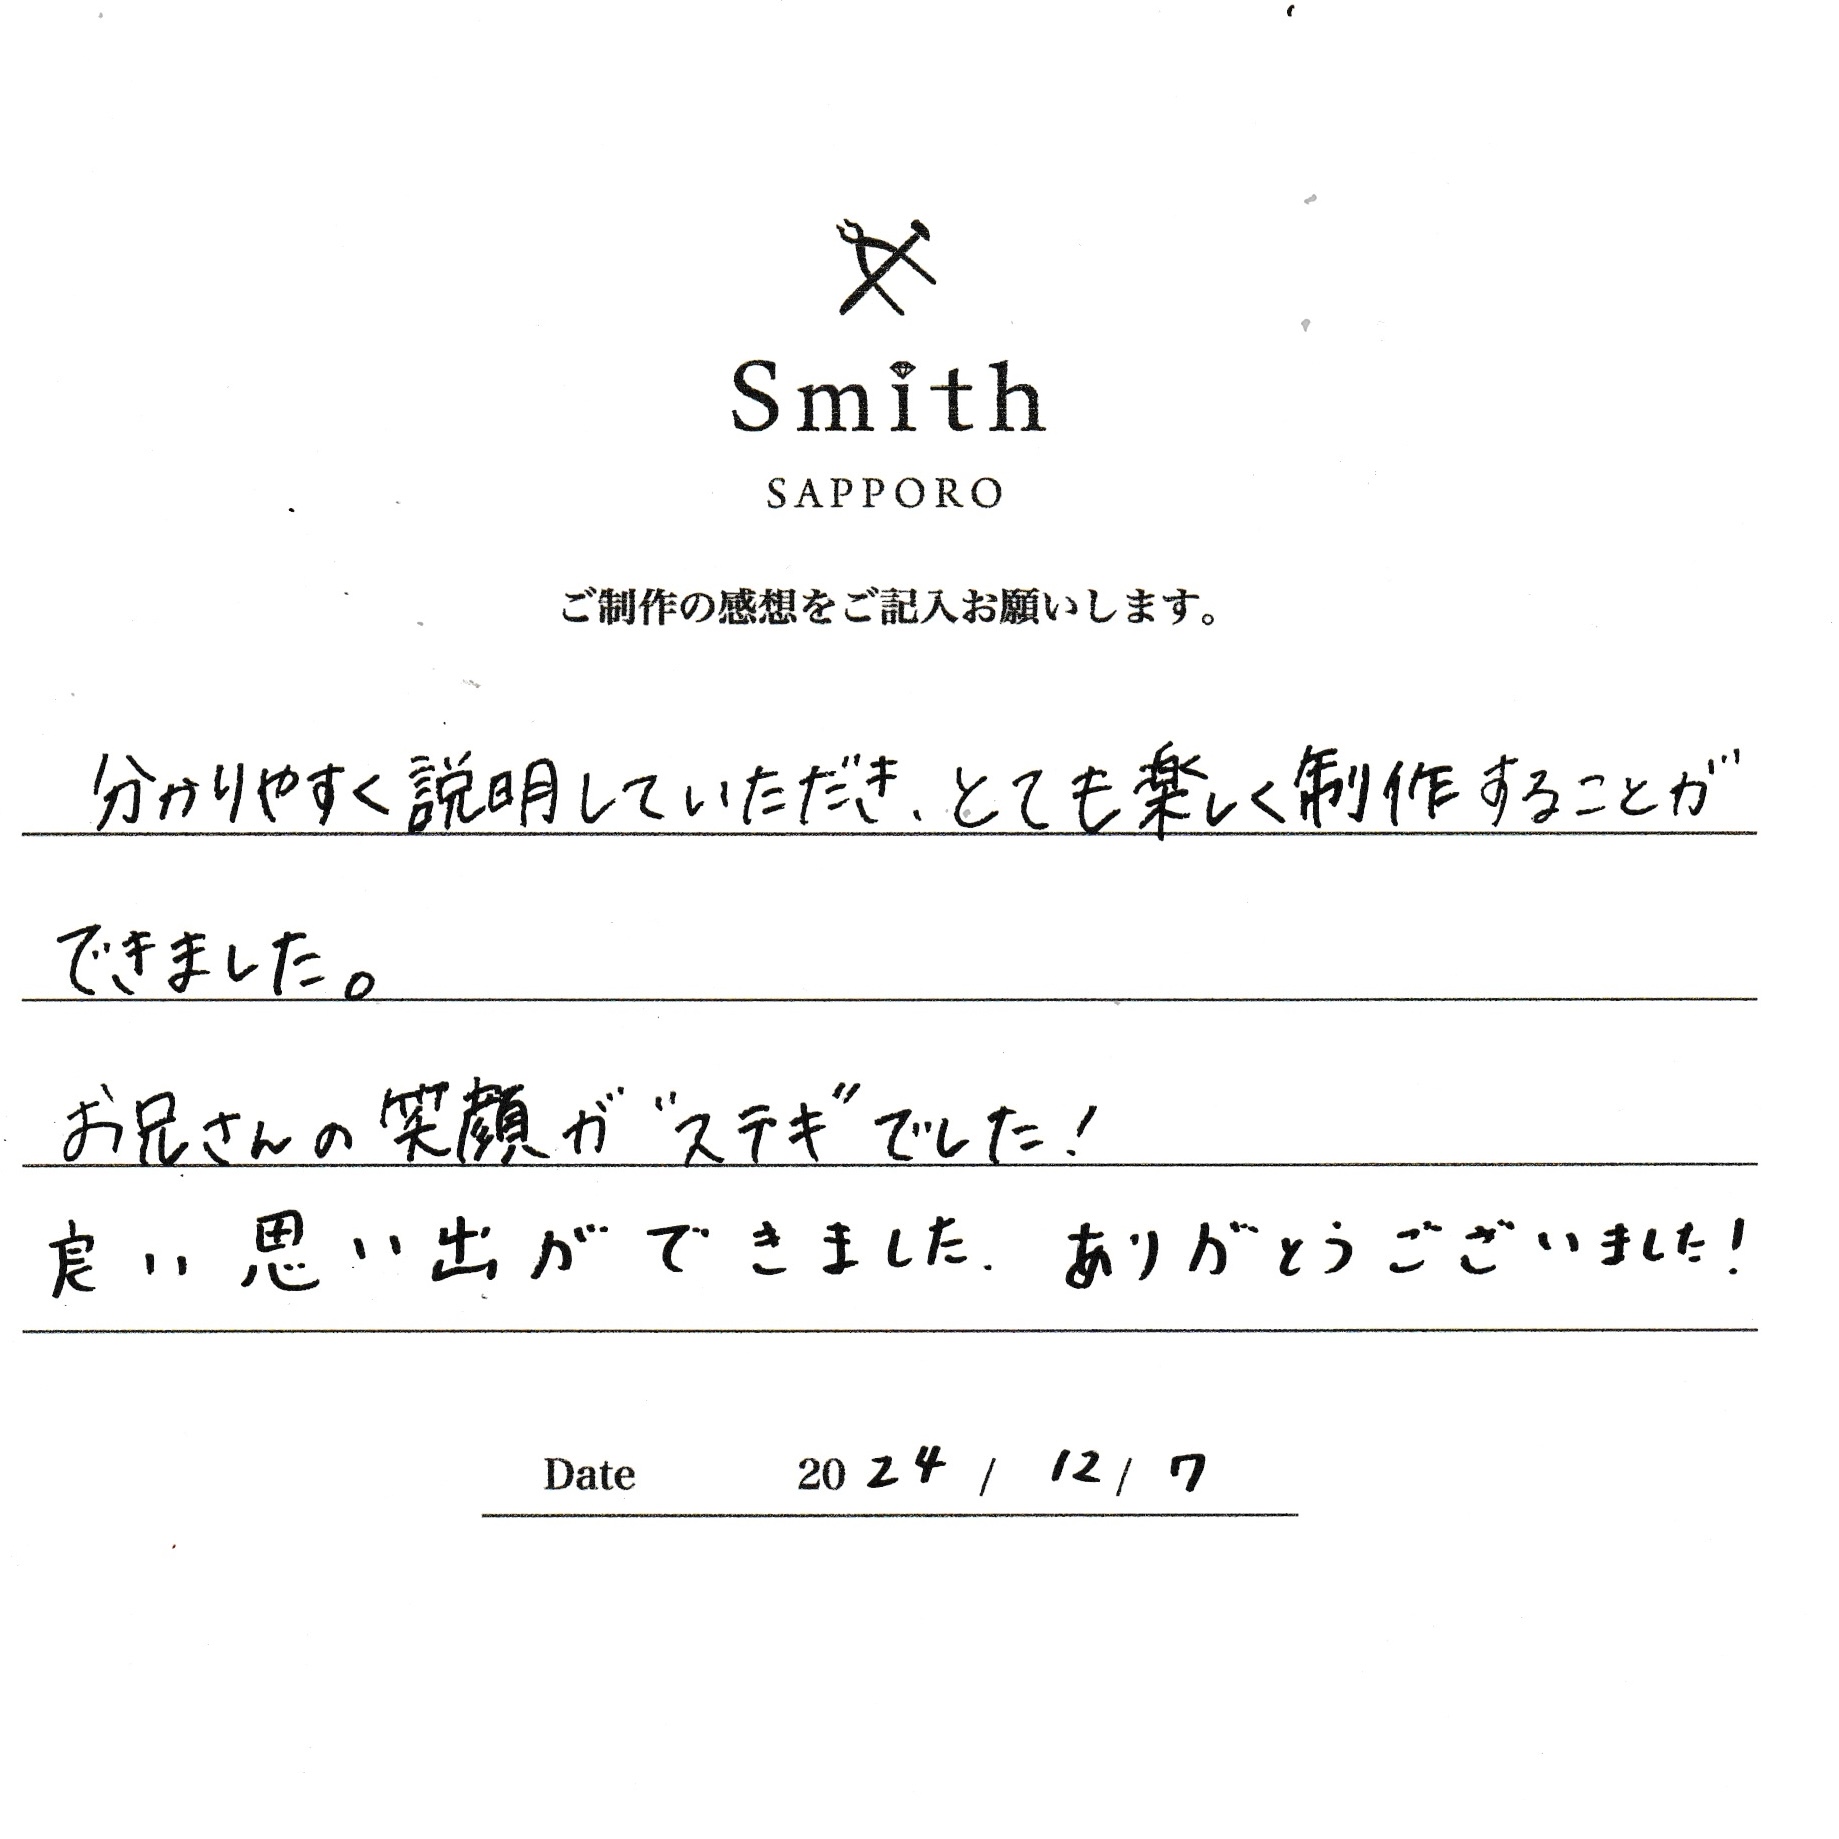 Smith
SAPPORO
ご制作の感想をご記入お願いします。
分かりやすく説明していただき、とても楽しく制作することが
できました。
お兄さんの笑顔が“ステキ”でした!
良い思い出ができました. ありがとうございました!
Date 2024 / 12 / 7